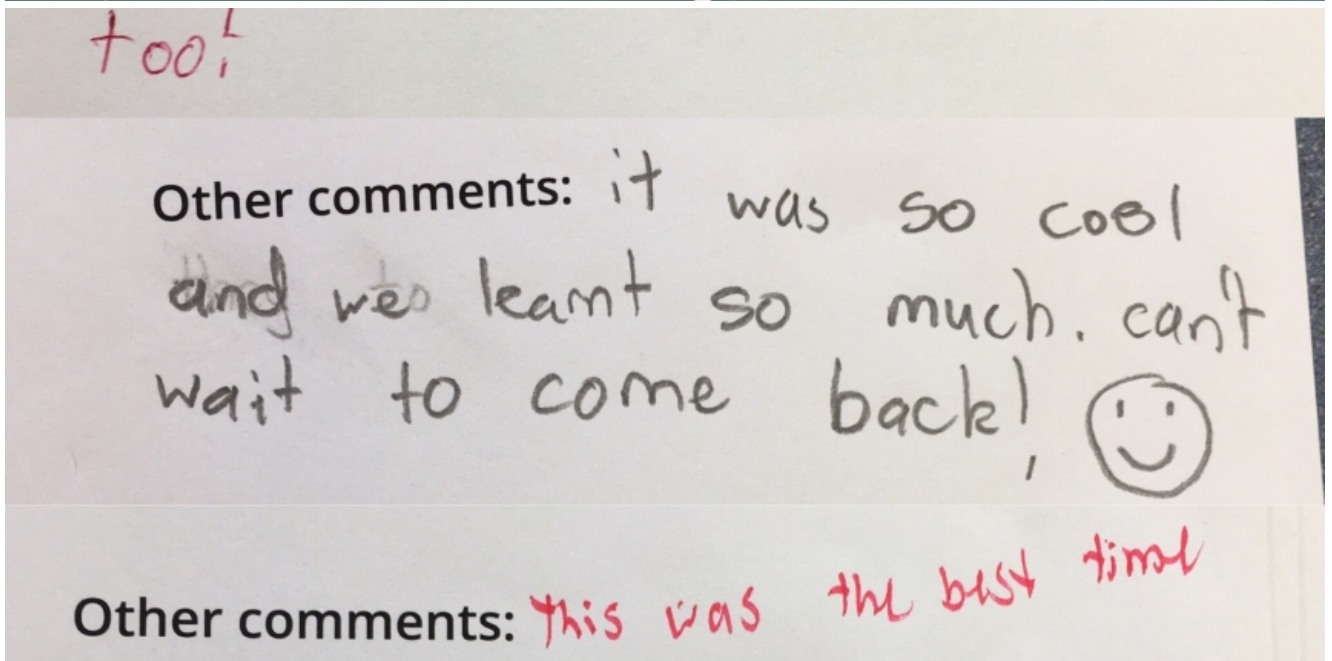 too!
Other comments: it was so cool
and we learnt so much. can't
wait to come back!
Other comments: This was the best time